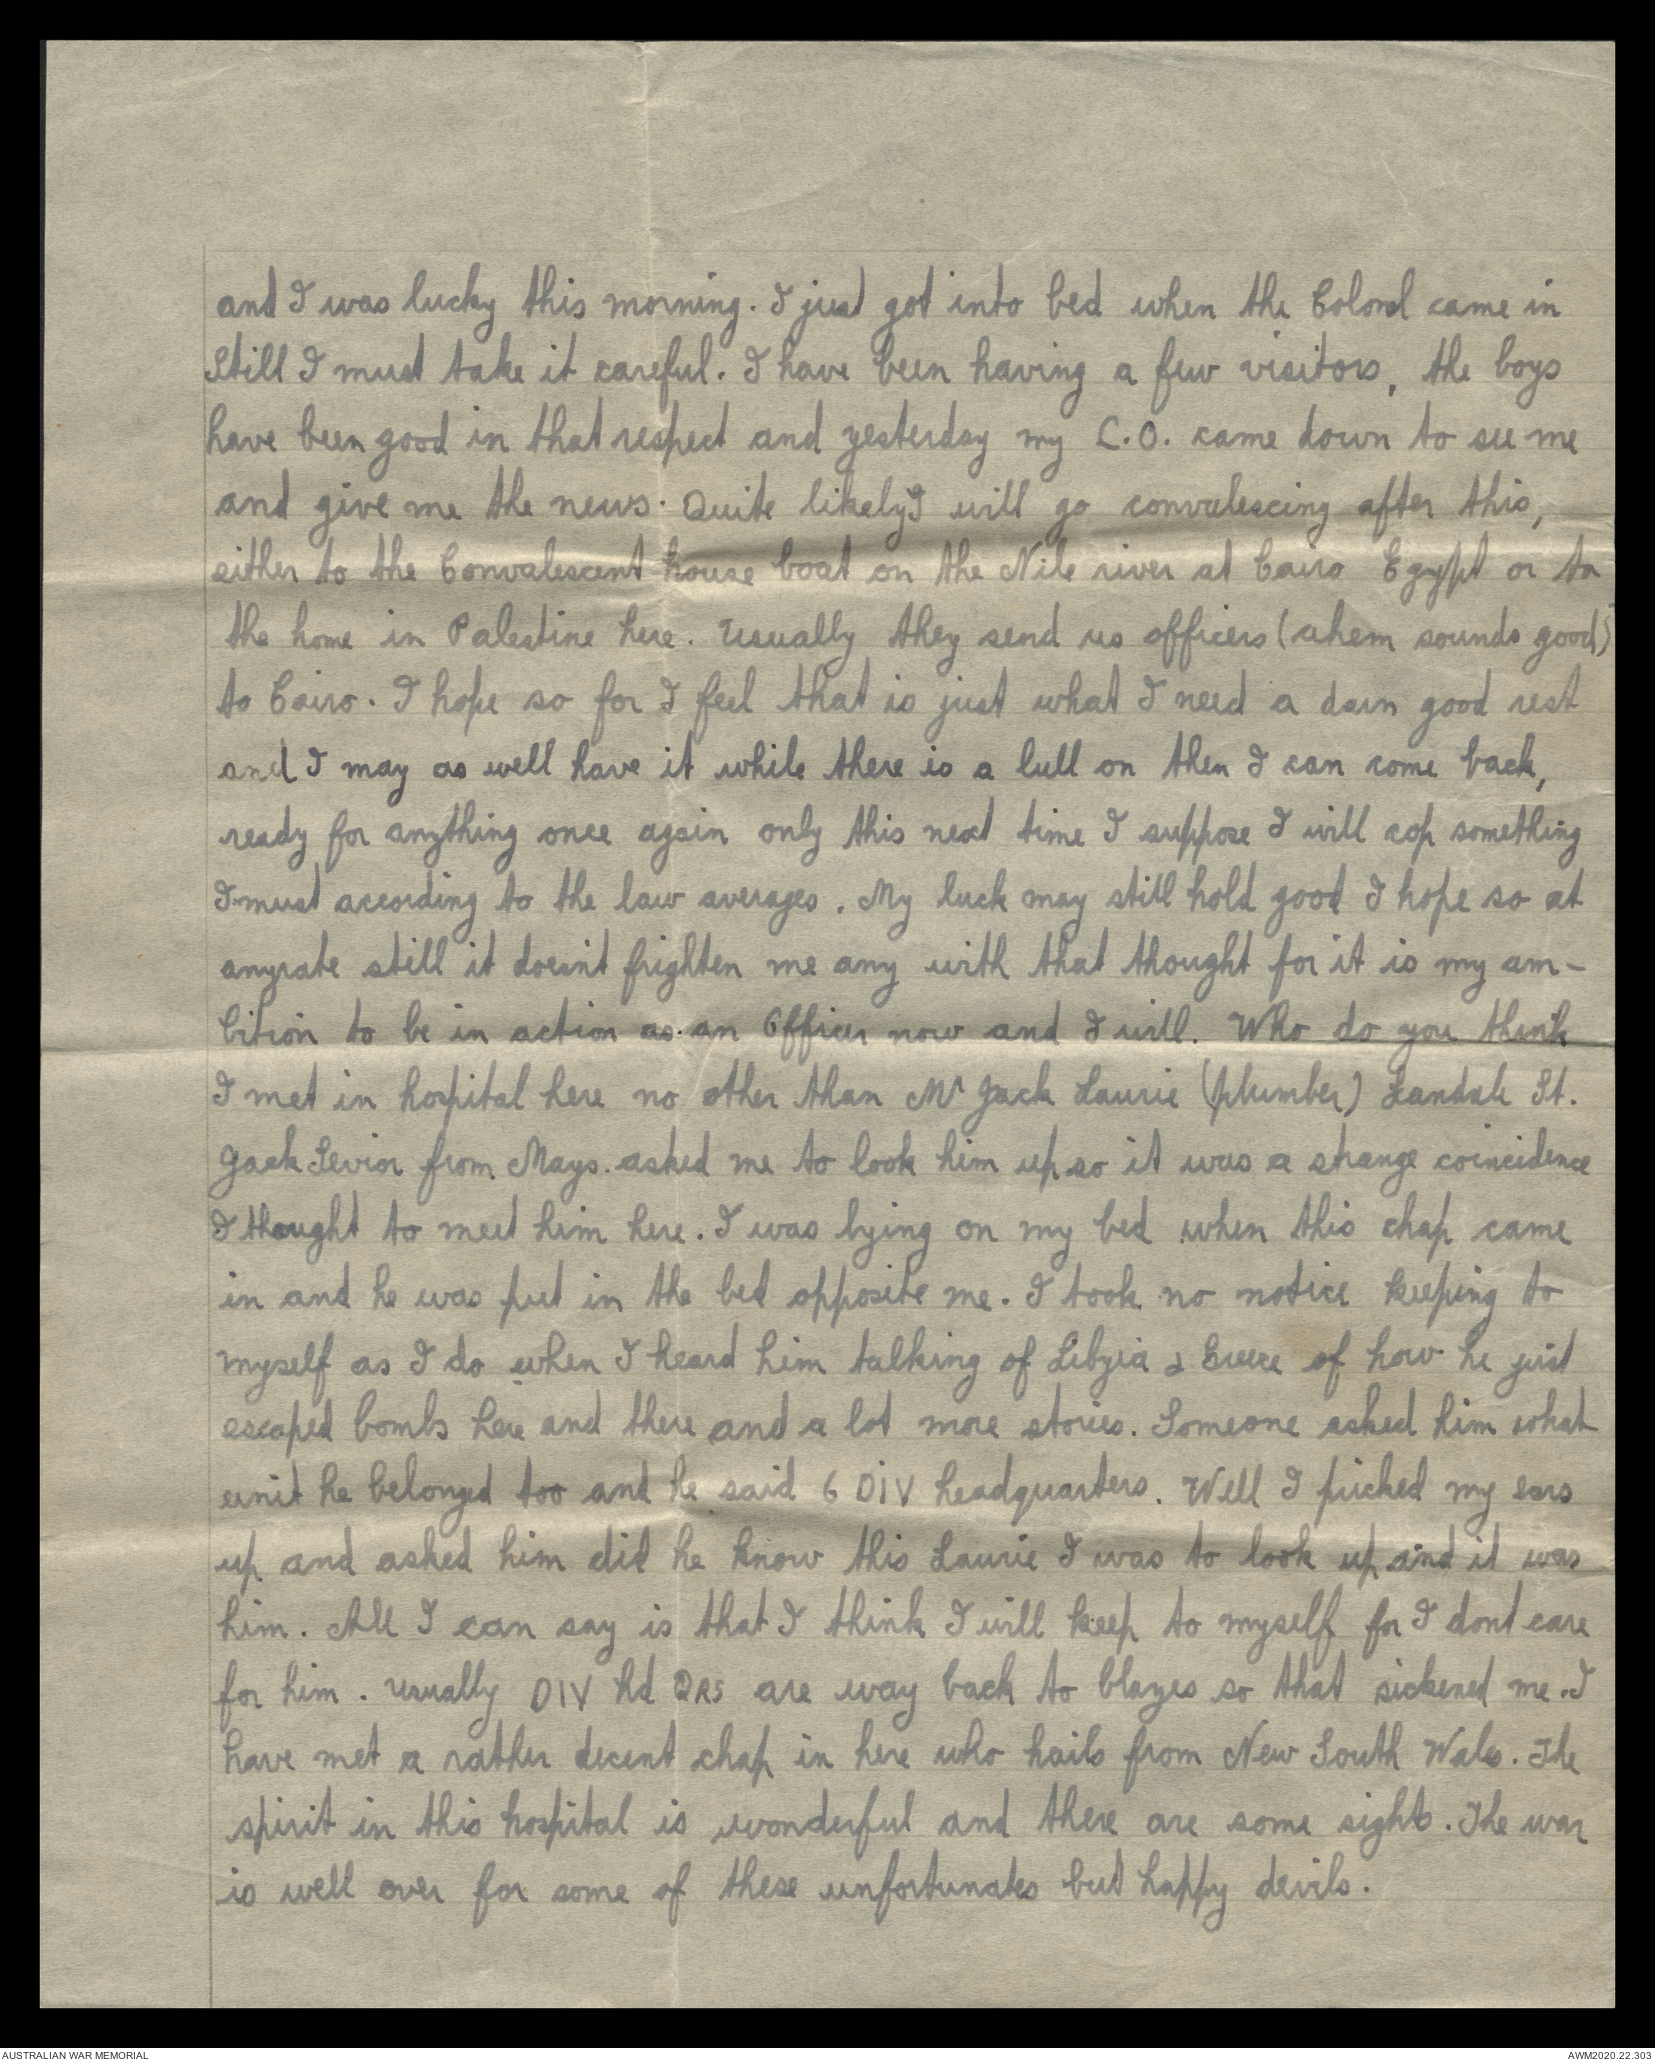 and I was lucky this morning. I just got into bed when the Colonel came in
Still I must take it careful. I have been having a few visitors, the boys
have been good in that respect and yesterday my C.O. came down to see me
and give me the news. Quite likely I will go convalescing after this,
either to the Convalescent house boat on the Nile river at Cairo Egypt or to
the home in Palestine here. Usually they send us officers (ahem sounds good)
to Cairo. I hope so for I feel that is just what I need a darn good rest
and I may as well have it while there is a lull on then I can come back,
ready for anything once again only this next time I suppose I will cop something
I must according to the law averages. My luck may still hold good I hope so at
anyrate still it doesnt frighten me any with that thought for it is my am-
bition to be in action as an Officer now and I will. Who do you think
I met in hospital here no other than Mr Jack Laurie (plumber) Landale St.
Jack Sevior from Mays. asked me to look him up so it was a strange coincidence
I thought to meet him here. I was lying on my bed when this chap came
in and he was put in the bed opposite me. I took no notice keeping to
myself as I do when I heard him talking of Libyia & Greece of how he just
escaped bombs here and there and a lot more stories. Someone asked him what
unit he belonged too and he said 6 DIV headquarters. Well I pricked my ears
up and asked him did he know this Laurie I was to look up and it was
him. All I can say is that I think I will keep to myself for I dont care
for him. Usually DIV hd QRS are way back to blazes so that sickened me. I
have met a rather decent chap in here who hails from New South Wales. The
spirit in this hospital is wonderful and there are some sights. The war
is well over for some of these unfortunates but happy devils.
AUSTRALIAN WAR MEMORIAL
AWM2020.22.303